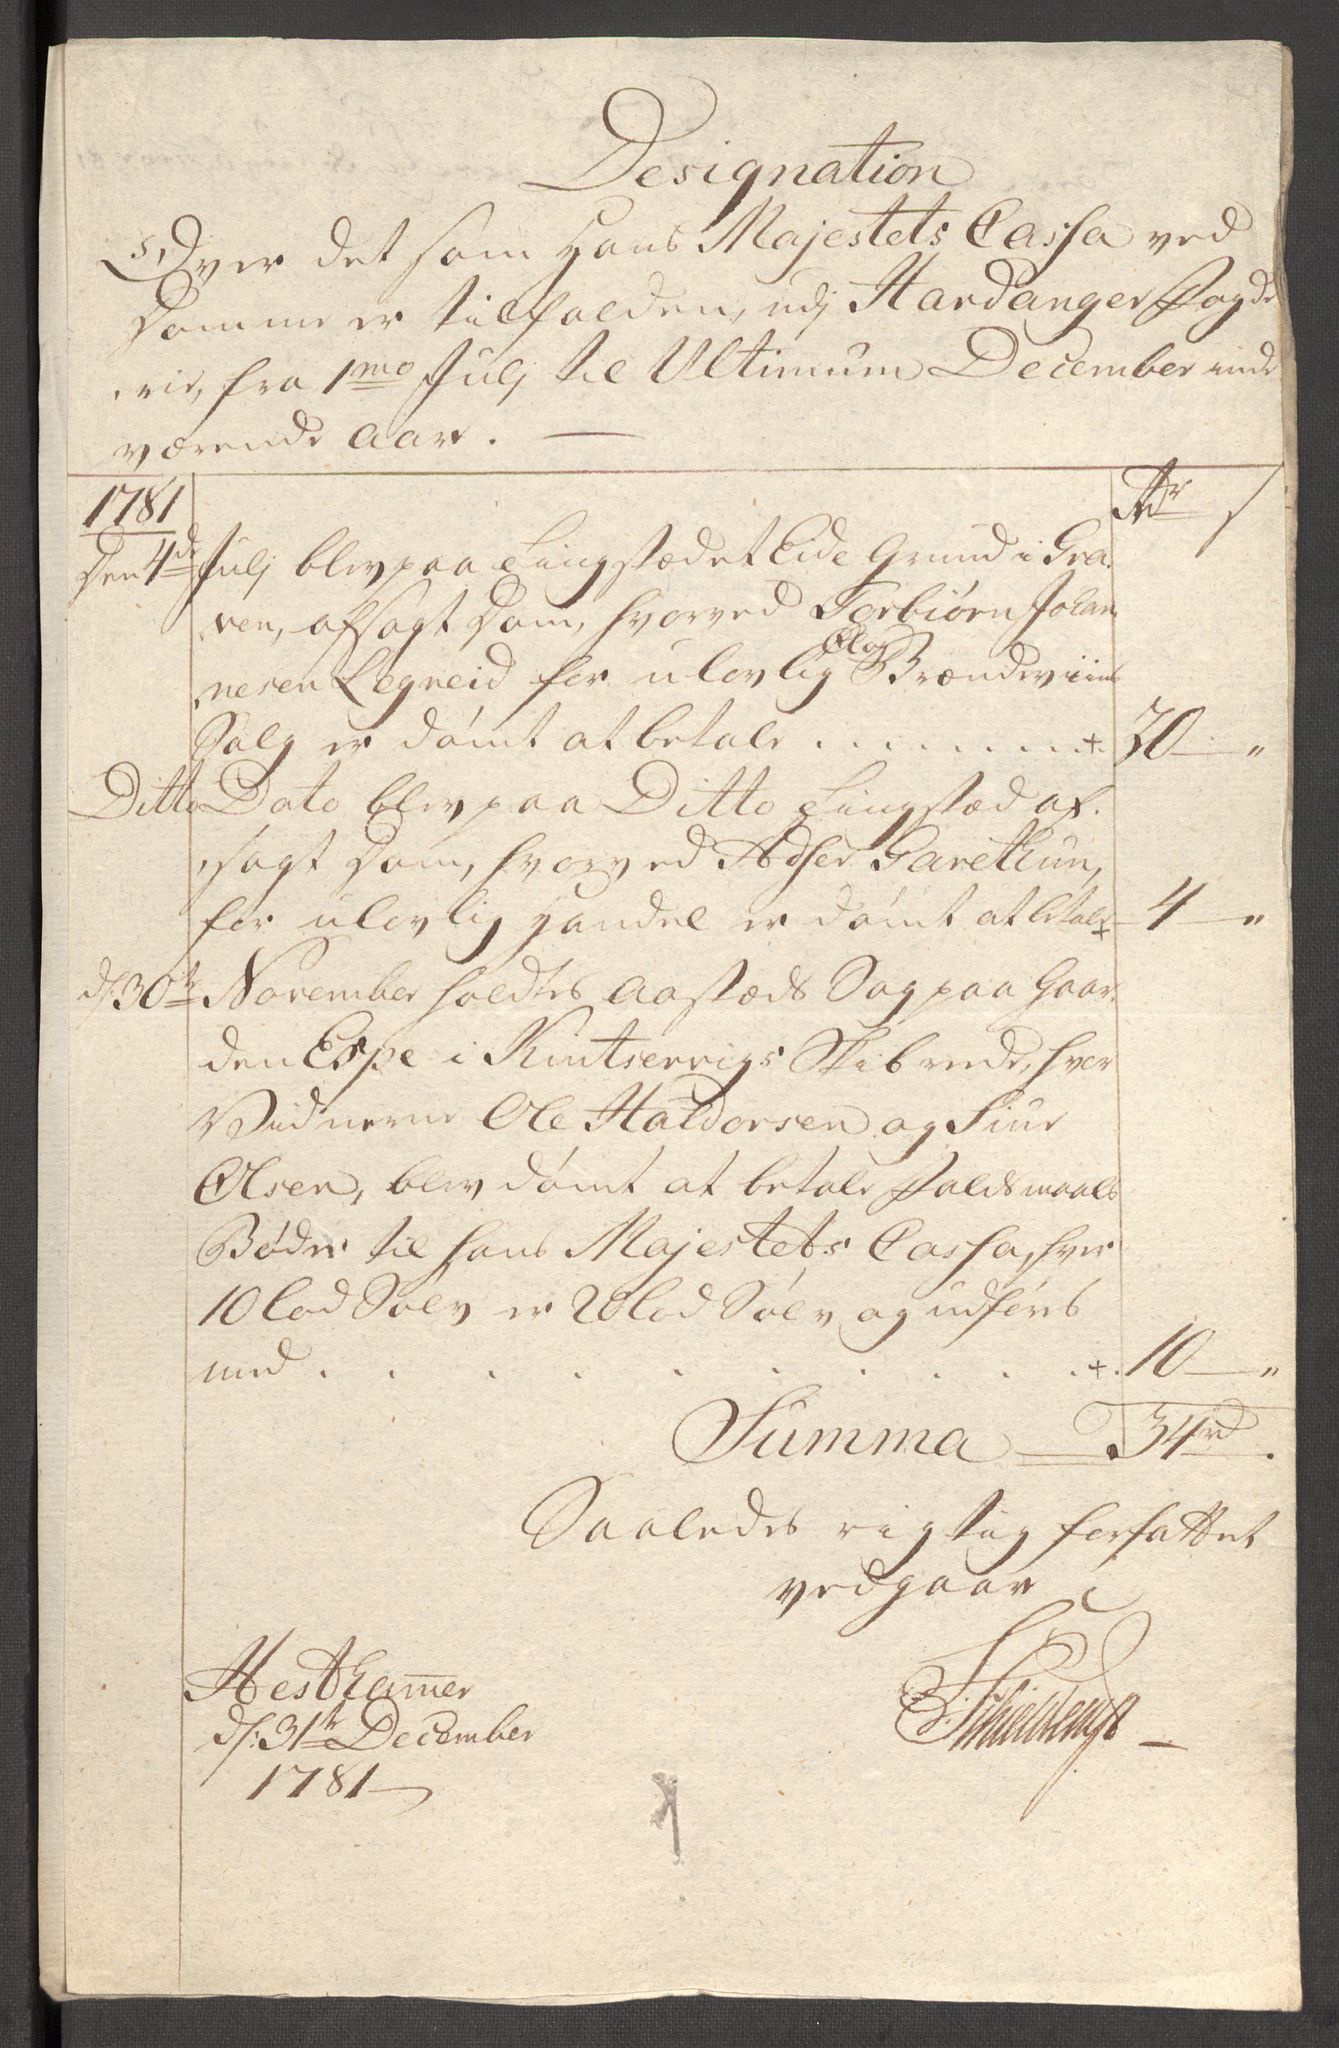 Designation
Over det som Hans Majestets Cassa ved
Domme er tilfalden, udj Hardanger Fogde
rie, fra 1mo Julj til Ultimum December inde
værende aar.
1781 Rdr s
Den 4de Julj blev paa Tingstædet Eide Grund i Gra
ven, afsagt Dom, hvorved Torbiørn Johan
nesen Legreid for ulovlig Øl og Brændeviins
Salg er dømt at betale . . . . . . . . + 20 — "
Ditto Dato blev paa Ditto Tingstæd af
sagt Dom, hvorved Adser Garethun,
for ulovlig Handel er dømt at betale + 4 — "
d: 30te November holdtes Aastæds Sag paa Gaar
den Espe i Kintservigs Skibrede, hvor
Vidnerne Ole Haldorsen og Siur
Olsen, blev dømt at betale Faldsmaals
Bøder til Hans Majestets Cassa, hver
10 lod Sølv er 20 lod Sølv og udføres
med . . . . . . . . . . + 10 — "
Summa — 34rd.
Saaledes rigtig forfattet
vedgaar
Hesthamer
d: 31te December
1781